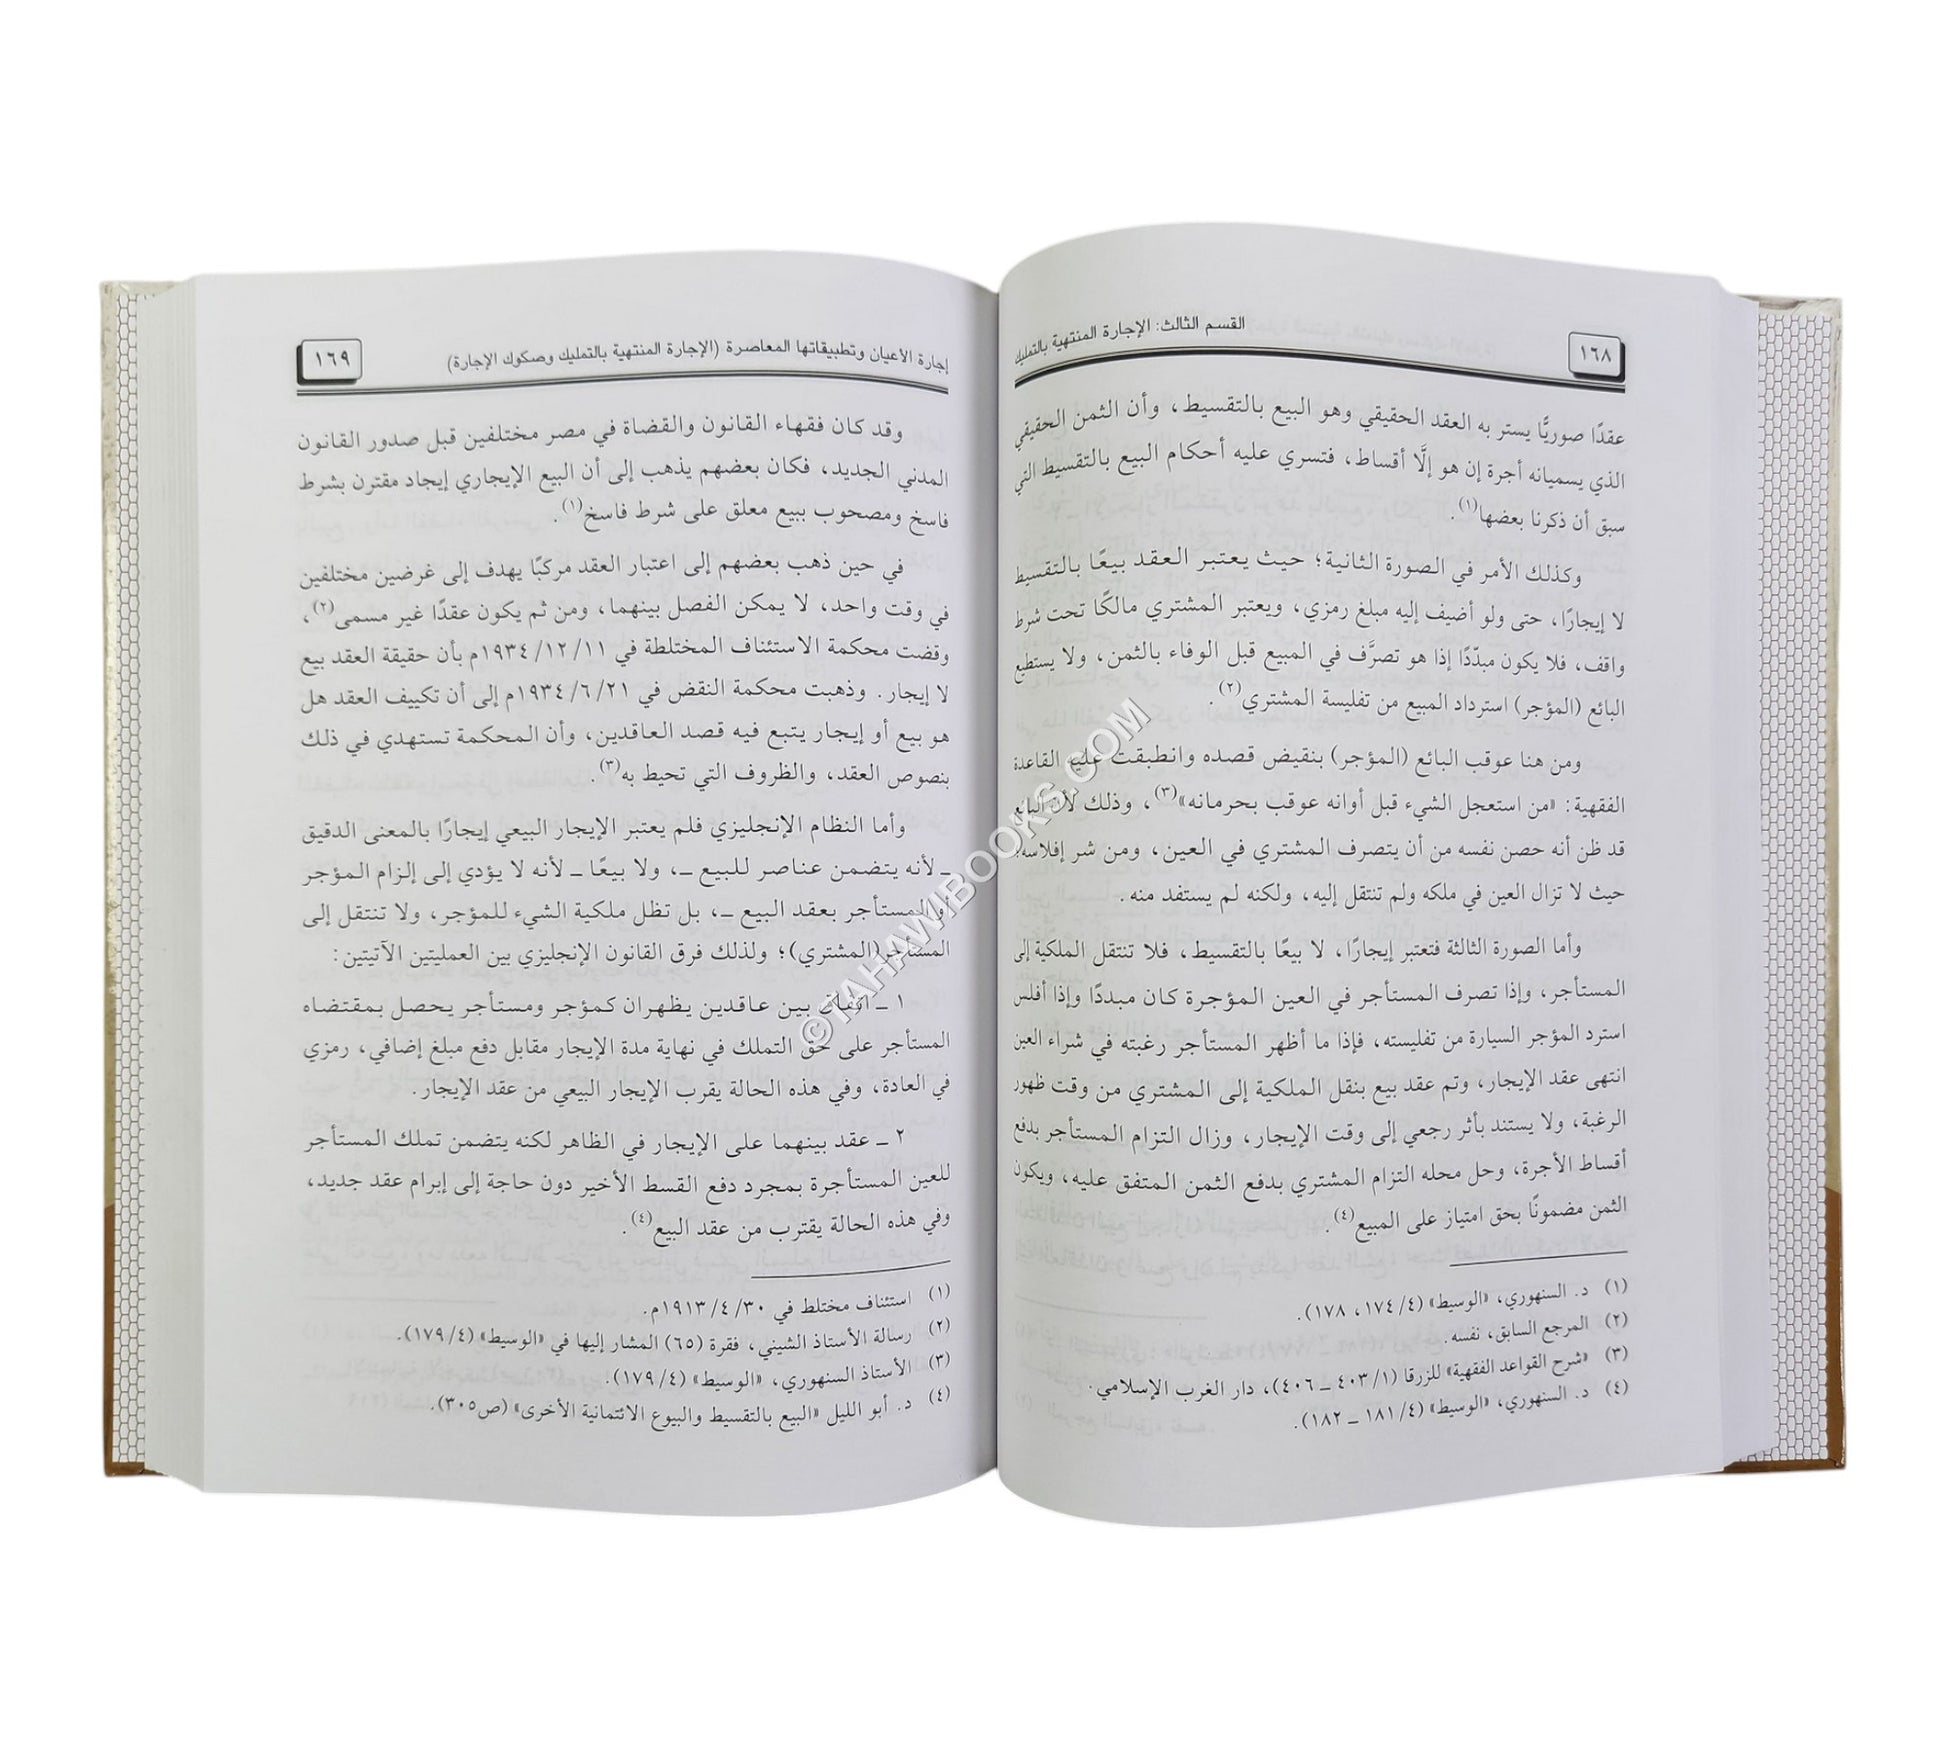 ١٦٨
القسم الثالث: الإجارة المنتهية بالتمليك
عقدًا صوريًّا يستر به العقد الحقيقي وهو البيع بالتقسيط، وأن الثمن الحقيقي
الذي يسميانه أجرة إن هو إلَّا أقساط، فتسري عليه أحكام البيع بالتقسيط التي
سبق أن ذكرنا بعضها(١).
وكذلك الأمر في الصورة الثانية؛ حيث يعتبر العقد بيعًا بالتقسيط
لا إيجارًا، حتى ولو أضيف إليه مبلغ رمزي، ويعتبر المشتري مالكًا تحت شرط
واقف، فلا يكون مبدّدًا إذا هو تصرَّف في المبيع قبل الوفاء بالثمن، ولا يستطيع
البائع (المؤجر) استرداد المبيع من تفليسة المشتري(٢).
ومن هنا عوقب البائع (المؤجر) بنقيض قصده وانطبقت عليه القاعدة
الفقهية: «من استعجل الشيء قبل أوانه عوقب بحرمانه»(٣)، وذلك لأن البائع
قد ظن أنه حصن نفسه من أن يتصرف المشتري في العين، ومن شر إفلاسه؛
حيث لا تزال العين في ملكه ولم تنتقل إليه، ولكنه لم يستفد منه.
وأما الصورة الثالثة فتعتبر إيجارًا، لا بيعًا بالتقسيط، فلا تنتقل الملكية إلى
المستأجر، وإذا تصرف المستأجر في العين المؤجرة كان مبددًا وإذا أفلس
استرد المؤجر السيارة من تفليسته، فإذا ما أظهر المستأجر رغبته في شراء العين
انتهى عقد الإيجار، وتم عقد بيع بنقل الملكية إلى المشتري من وقت ظهور
الرغبة، ولا يستند بأثر رجعي إلى وقت الإيجار، وزال التزام المستأجر بدفع
أقساط الأجرة، وحل محله التزام المشتري بدفع الثمن المتفق عليه، ويكون
الثمن مضمونًا بحق امتياز على المبيع(٤).
(١) د. السنهوري، «الوسيط» (٤/ ١٧٤، ١٧٨).
(٢) المرجع السابق، نفسه.
(٣) «شرح القواعد الفقهية» للزرقا (١/ ٤٠٣ ــ ٤٠٦)، دار الغرب الإسلامي.
(٤) د. السنهوري، «الوسيط» (٤/ ١٨١ ــ ١٨٢).
إجارة الأعيان وتطبيقاتها المعاصرة (الإجارة المنتهية بالتمليك وصكوك الإجارة)
١٦٩
وقد كان فقهاء القانون والقضاة في مصر مختلفين قبل صدور القانون
المدني الجديد، فكان بعضهم يذهب إلى أن البيع الإيجاري إيجاد مقترن بشرط
فاسخ ومصحوب ببيع معلق على شرط فاسخ(١).
في حين ذهب بعضهم إلى اعتبار العقد مركبًا يهدف إلى غرضين مختلفين
في وقت واحد، لا يمكن الفصل بينهما، ومن ثم يكون عقدًا غير مسمى(٢)،
وقضت محكمة الاستئناف المختلطة في ١١/ ١٢/ ١٩٣٤م بأن حقيقة العقد بيع
لا إيجار. وذهبت محكمة النقض في ٢١/ ٦/ ١٩٣٤م إلى أن تكييف العقد هل
هو بيع أو إيجار يتبع فيه قصد العاقدين، وأن المحكمة تستهدي في ذلك
بنصوص العقد، والظروف التي تحيط به(٣).
وأما النظام الإنجليزي فلم يعتبر الإيجار البيعي إيجارًا بالمعنى الدقيق
ــ لأنه يتضمن عناصر للبيع ــ، ولا بيعًا ــ لأنه لا يؤدي إلى إلزام المؤجر
أو المستأجر بعقد البيع ــ، بل تظل ملكية الشيء للمؤجر، ولا تنتقل إلى
المستأجر (المشتري)؛ ولذلك فرق القانون الإنجليزي بين العمليتين الآتيتين:
١ ــ اتفاق بين عاقدين يظهران كمؤجر ومستأجر يحصل بمقتضاه
المستأجر على حق التملك في نهاية مدة الإيجار مقابل دفع مبلغ إضافي، رمزي
في العادة، وفي هذه الحالة يقرب الإيجار البيعي من عقد الإيجار.
٢ ــ عقد بينهما على الإيجار في الظاهر لكنه يتضمن تملك المستأجر
للعين المستأجرة بمجرد دفع القسط الأخير دون حاجة إلى إبرام عقد جديد،
وفي هذه الحالة يقترب من عقد البيع(٤).
(١) استئناف مختلط في ٣٠/ ٤/ ١٩١٣م.
(٢) رسالة الأستاذ الشيني، فقرة (٦٥) المشار إليها في «الوسيط» (٤/ ١٧٩).
(٣) الأستاذ السنهوري، «الوسيط» (٤/ ١٧٩).
(٤) د. أبو الليل «البيع بالتقسيط والبيوع الائتمانية الأخرى» (ص٣٠٥).
©TAHAWIBOOKS.COM